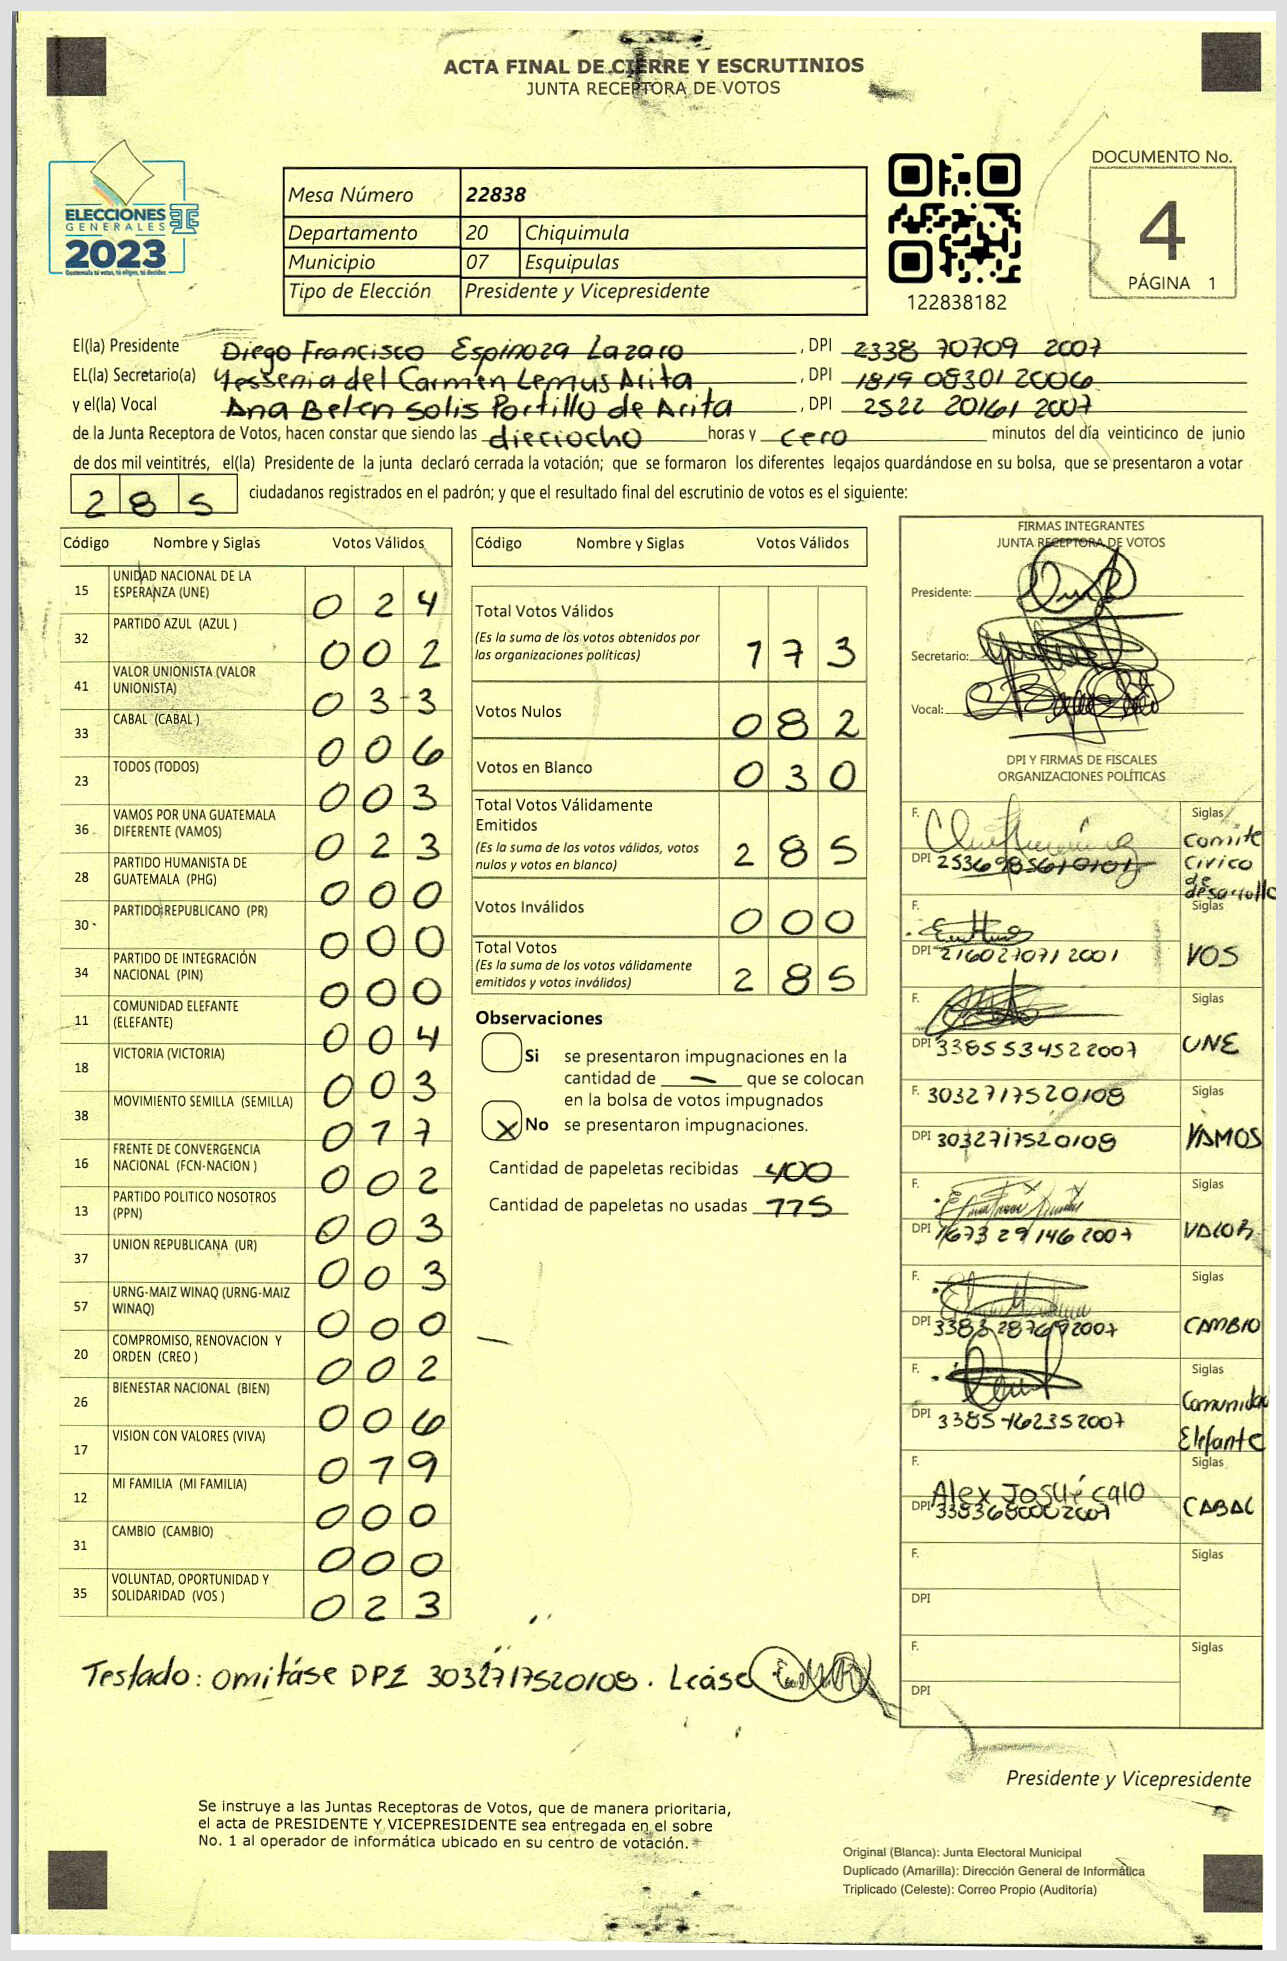 ACTA FINAL DE CIERRE Y ESCRUTINIOS
JUNTA RECEPTORA DE VOTOS
ELECCIONES
GENERALES
2023
Guatemala tú votas, tú eliges, tú decides
Mesa Número 22838
Departamento 20 Chiquimula
Municipio 07 Esquipulas
Tipo de Elección Presidente y Vicepresidente
122838182
DOCUMENTO No.
4
PÁGINA 1
El(la) Presidente Diego Francisco Espinoza Lazaro, DPI 2338 70709 2007
EL(la) Secretario(a) Yessenia del Carmen Lemus Arita, DPI 1819 08301 2006
y el(la) Vocal Ana Belen Solis Portillo de Arita, DPI 2522 20161 2007
de la Junta Receptora de Votos, hacen constar que siendo las dieciocho horas y cero minutos del día veinticinco de junio
de dos mil veintitrés, el(la) Presidente de la junta declaró cerrada la votación; que se formaron los diferentes legajos guardándose en su bolsa, que se presentaron a votar
285 ciudadanos registrados en el padrón; y que el resultado final del escrutinio de votos es el siguiente:
Código Nombre y Siglas Votos Válidos
15 UNIDAD NACIONAL DE LA ESPERANZA (UNE) 0 2 4
32 PARTIDO AZUL (AZUL ) 0 0 2
41 VALOR UNIONISTA (VALOR UNIONISTA) 0 3 3
33 CABAL (CABAL ) 0 0 6
23 TODOS (TODOS) 0 0 3
36 VAMOS POR UNA GUATEMALA DIFERENTE (VAMOS) 0 2 3
28 PARTIDO HUMANISTA DE GUATEMALA (PHG) 0 0 0
30 PARTIDO REPUBLICANO (PR) 0 0 0
34 PARTIDO DE INTEGRACIÓN NACIONAL (PIN) 0 0 0
11 COMUNIDAD ELEFANTE (ELEFANTE) 0 0 4
18 VICTORIA (VICTORIA) 0 0 3
38 MOVIMIENTO SEMILLA (SEMILLA) 0 1 7
16 FRENTE DE CONVERGENCIA NACIONAL (FCN-NACION ) 0 0 2
13 PARTIDO POLITICO NOSOTROS (PPN) 0 0 3
37 UNION REPUBLICANA (UR) 0 0 3
57 URNG-MAIZ WINAQ (URNG-MAIZ WINAQ) 0 0 0
20 COMPROMISO, RENOVACION Y ORDEN (CREO ) 0 0 2
26 BIENESTAR NACIONAL (BIEN) 0 0 6
17 VISION CON VALORES (VIVA) 0 1 9
12 MI FAMILIA (MI FAMILIA) 0 0 0
31 CAMBIO (CAMBIO) 0 0 0
35 VOLUNTAD, OPORTUNIDAD Y SOLIDARIDAD (VOS ) 0 2 3
Código Nombre y Siglas Votos Válidos
Total Votos Válidos
(Es la suma de los votos obtenidos por
las organizaciones políticas) 1 7 3
Votos Nulos 0 8 2
Votos en Blanco 0 3 0
Total Votos Válidamente
Emitidos
(Es la suma de los votos válidos, votos
nulos y votos en blanco) 2 8 5
Votos Inválidos 0 0 0
Total Votos
(Es la suma de los votos válidamente
emitidos y votos inválidos) 2 8 5
Observaciones
Si se presentaron impugnaciones en la
cantidad de — que se colocan
en la bolsa de votos impugnados
X No se presentaron impugnaciones.
Cantidad de papeletas recibidas 400
Cantidad de papeletas no usadas 115
FIRMAS INTEGRANTES
JUNTA RECEPTORA DE VOTOS
Presidente:
Secretario:
Vocal:
DPI Y FIRMAS DE FISCALES
ORGANIZACIONES POLÍTICAS
F. Siglas Comite Civico de desarrollo
DPI 2536985610101
F. Siglas VOS
DPI 2160270712001
F. Siglas UNE
DPI 3385534522007
F. 3032717520108 Siglas VAMOS
DPI 3032717520108
F. Siglas VALOR
DPI 1673 29146 2007
F. Siglas CAMBIO
DPI 3383287692007
F. Siglas Comunidad Elefante
DPI 3385462352007
F. Alex Josué Calo Siglas CABAL
DPI 3383680002007
F. Siglas
DPI
F. Siglas
DPI
Testado: Omitáse DPI 3032717520108. Leáse
Presidente y Vicepresidente
Se instruye a las Juntas Receptoras de Votos, que de manera prioritaria,
el acta de PRESIDENTE Y VICEPRESIDENTE sea entregada en el sobre
No. 1 al operador de informática ubicado en su centro de votación.
Original (Blanca): Junta Electoral Municipal
Duplicado (Amarilla): Dirección General de Informática
Triplicado (Celeste): Correo Propio (Auditoría)